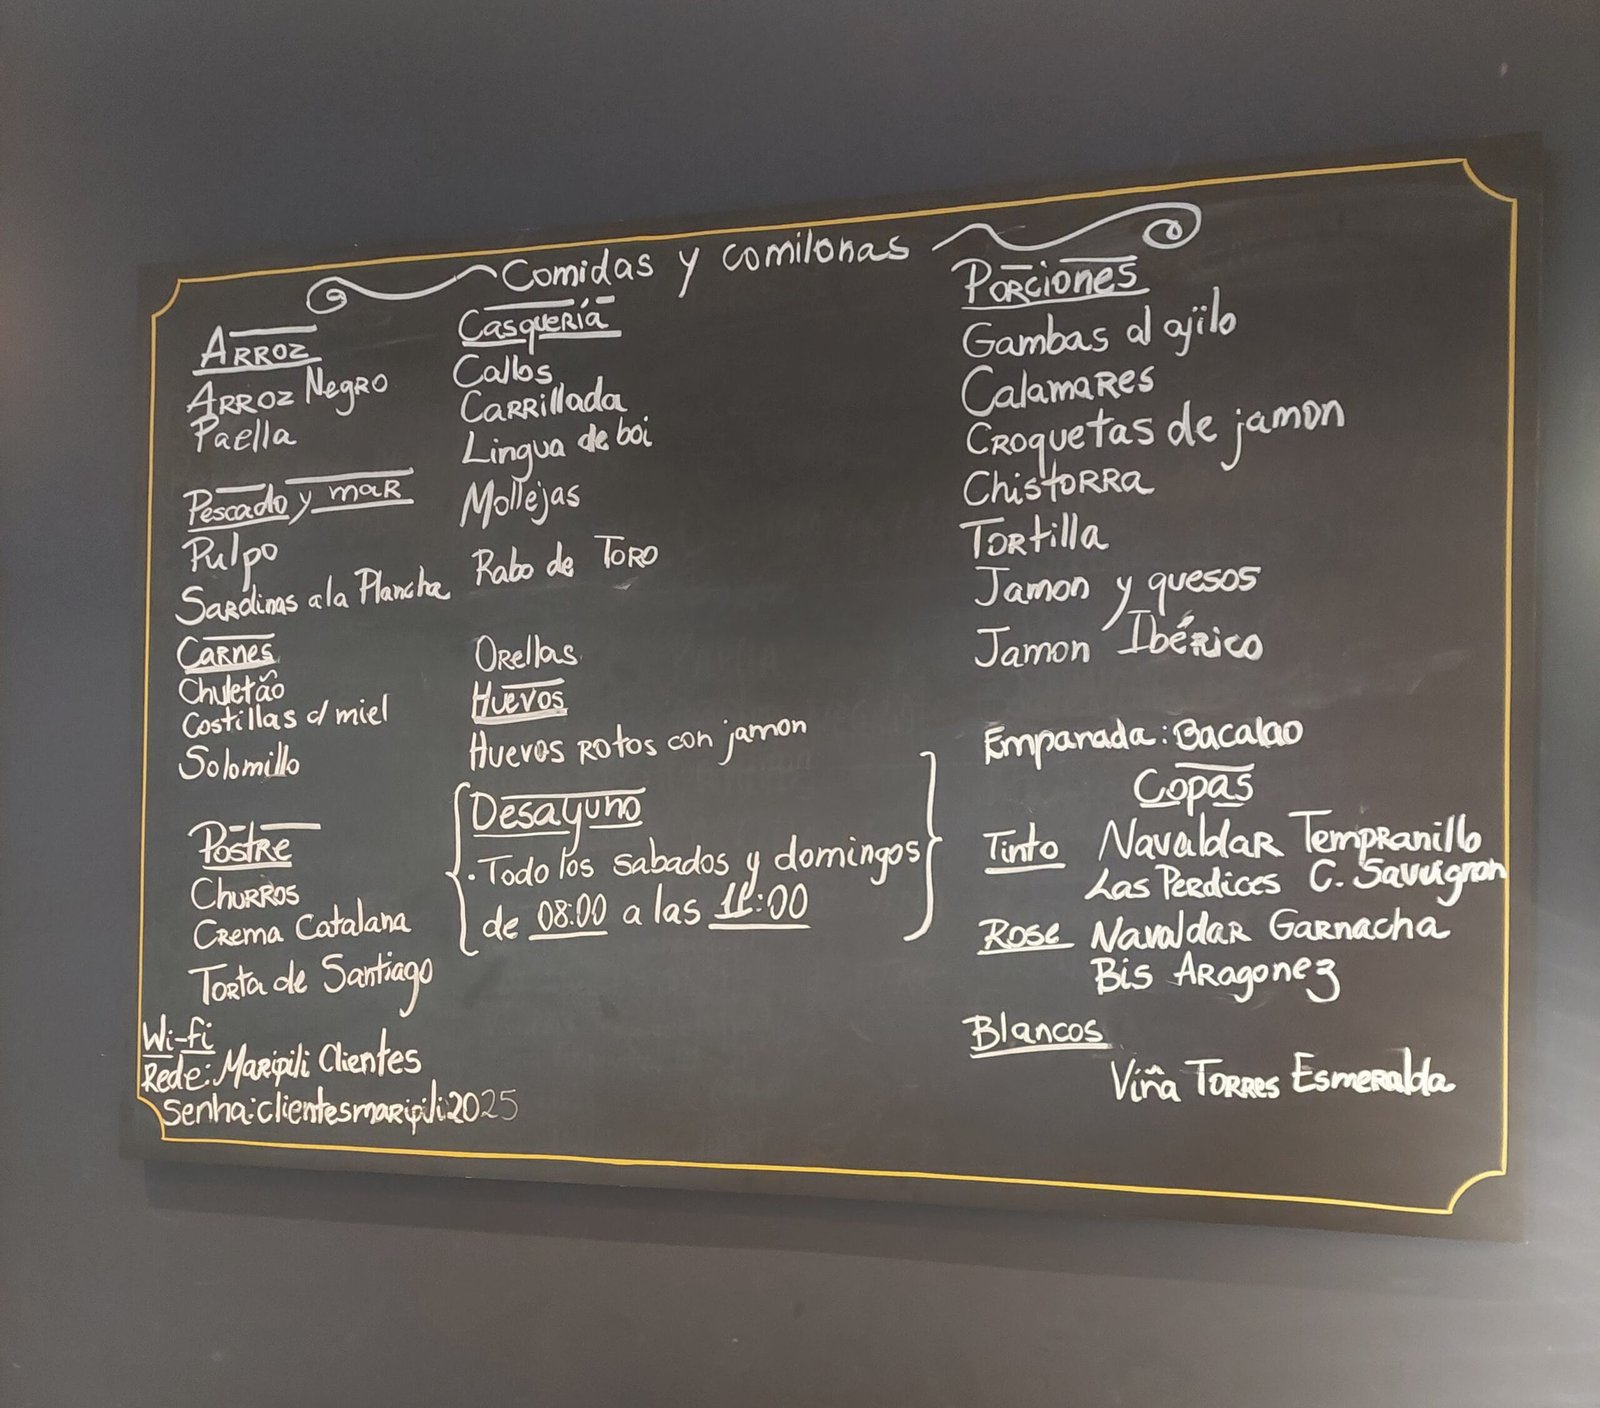 Comidas y comilonas
Arroz
Arroz Negro
Paella
Pescado y mar
Pulpo
Sardinas a la Plancha
Carnes
Chuletão
Costillas c/ miel
Solomillo
Postre
Churros
Crema Catalana
Torta de Santiago
Wi-fi
Rede: Maripili Clientes
Senha: clientesmaripili2025
Casquería
Callos
Carrillada
Lingua de boi
Mollejas
Rabo de Toro
Orellas
Huevos
Huevos rotos con jamon
Desayuno
. Todo los sabados y domingos
de 08:00 a las 11:00
Porciones
Gambas al ajilo
Calamares
Croquetas de jamon
Chistorra
Tortilla
Jamon y quesos
Jamon Ibérico
Empanada: Bacalao
Copas
Tinto Navaldar Tempranillo
Las Perdices C. Sauvignon
Rose Navaldar Garnacha
Bis Aragonez
Blancos
Viña Torres Esmeralda